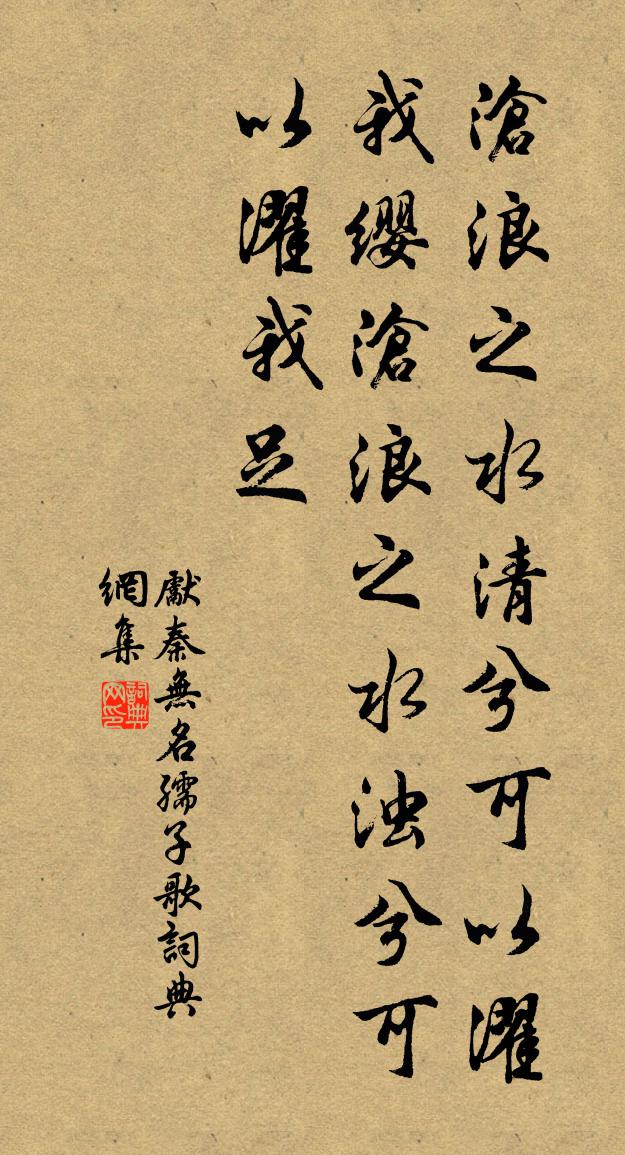 滄浪之水清兮可以濯
我纓滄浪之水浊兮可
以濯我足
獻秦無名孺子歌詞典
網集
詞典网印